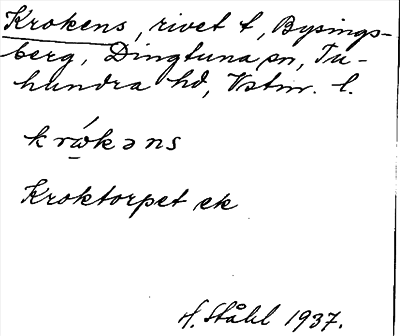 Krokens, rivet t, Bysings-
berg, Dingtuna sn, Tu-
hundra hd, Vstm. l.
krώ̣kəns
Kroktorpet ek
H. Ståhl 1937.